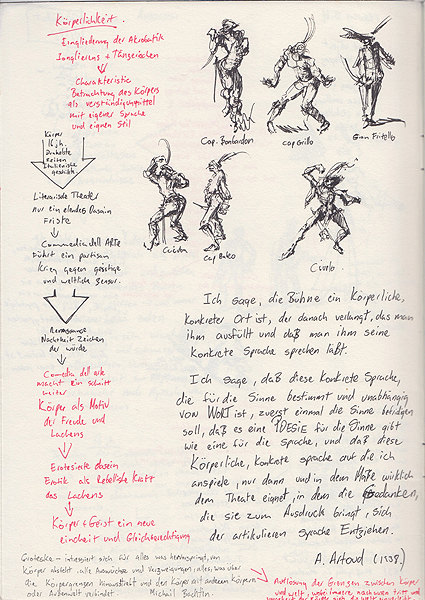 Körperlichkeit.
Eingliederung der Akrobatik
Jonglierens + Tänzerischen
Charakteristic
Betrachtung des Körpers
als verständigsmittel
mit eigener Sprache
und eignen Stil
Körper
16 jh.
Italienische
Literarische Theater
nur ein elendes Dasein
Friste
Commedia dell ARTE
führt ein partisan
Krieg gegen geistige
und weltliche zensur.
Renaissance
Nacktheit Zeichen
der würde
Comedia dell arte
macht ein schritt
weiter
Körper als Motiv
der Freude und
Lachens
Erotik als Rebellische Kraft
das Lachens
Körper + Geist ein neue
einheit und Gleichberechtigung
Cap. Bonbardon
Cap Grillo
Gian Fritello
Cap Babeo
Ich sage, die Bühne ein Körperliche,
konkreter Ort ist, der danach verlangt, das man
ihm ausfüllt und daß man ihm seine
Konkrete Sprache sprechen läßt.
Ich sage, daß diese Konkrete Sprache,
die für die Sinne bestimmt und unabhängig
von WORT ist, zuerst einmal die Sinne befridigen
soll, daß es eine POESIE für die Sinne gibt
wie eine für die Sprache, und daß diese
Körperliche, Konkrete sprache auf die ich
anspiele, nur dann und in dem Maße wirklich
dem Theater eignet, in dem die Gedanken,
die sie zum Ausdruck bringt, sich
der artikulieren sprache Entziehen.
A. Artoud (1938.)
Groteske - interssiert sich für alles was hervorspringt, vom
Körper absteht. alle Auswüchse und Verzweigungen, alles, was über
die Körpergrenzen hinausstrebt und den Körper mit anderen Körpern
oder Außenwelt verbindet. Michail Bachtin
Auslösung der Grenzen zwischen Körper
und Welt,